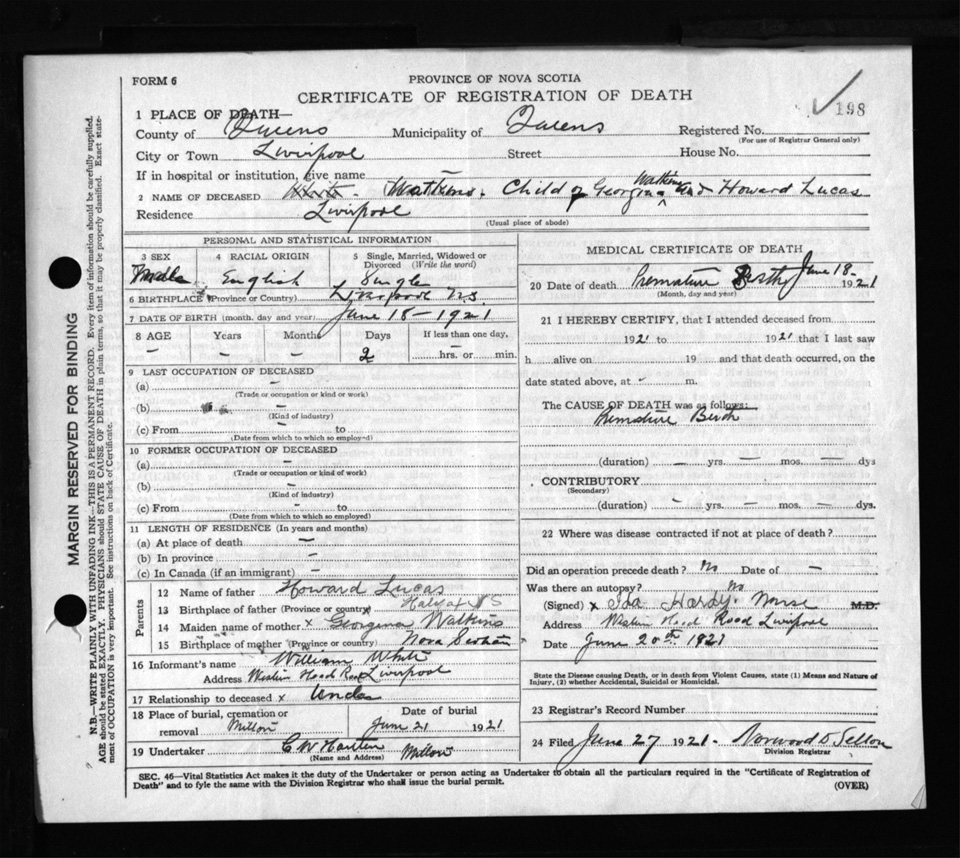 FORM 6
PROVINCE OF NOVA SCOTIA
CERTIFICATE OF REGISTRATION OF DEATH
198
1 PLACE OF DEATH—
County of Queens Municipality of Queens Registered No.
(For use of Registrar General only)
City or Town Liverpool Street House No.
If in hospital or institution, give name —
2 NAME OF DECEASED Watkins, Child of Georgina Watkins and Howard Lucas
Residence Liverpool
(Usual place of abode)
PERSONAL AND STATISTICAL INFORMATION
3 SEX 4 RACIAL ORIGIN 5 Single, Married, Widowed or Divorced (Write the word)
English Single
6 BIRTHPLACE (Province or Country) Liverpool N.S.
7 DATE OF BIRTH (month, day and year) June 18 – 1921
8 AGE Years Months Days If less than one day,
— — — 2 hrs. or min.
9 LAST OCCUPATION OF DECEASED
(a) —
(Trade or occupation or kind of work)
(b) —
(Kind of industry)
(c) From — to
(Date from which to which so employed)
10 FORMER OCCUPATION OF DECEASED
(a) —
(Trade or occupation or kind of work)
(b) —
(Kind of industry)
(c) From — to
(Date from which to which so employed)
11 LENGTH OF RESIDENCE (In years and months)
(a) At place of death —
(b) In province —
(c) In Canada (if an immigrant) —
Parents
12 Name of father Howard Lucas
13 Birthplace of father (Province or country) Halifax N S
14 Maiden name of mother x Georgina Watkins
15 Birthplace of mother (Province or country) Nova Scotia
16 Informant's name William White
Address Western Head Road Liverpool
17 Relationship to deceased x Uncle
18 Place of burial, cremation or removal Milton
Date of burial
June 21 1921
19 Undertaker Milton
(Name and Address)
MEDICAL CERTIFICATE OF DEATH
20 Date of death Premature Birth June 18 1921
(Month, day and year)
21 I HEREBY CERTIFY, that I attended deceased from
1921 to 1921 that I last saw
h alive on 19 and that death occurred, on the
date stated above, at - m.
The CAUSE OF DEATH was as follows:
Premature Birth
(duration) — yrs. — mos. — dys
CONTRIBUTORY
(Secondary)
(duration) — yrs. — mos. — dys.
22 Where was disease contracted if not at place of death?
Did an operation precede death? No Date of —
Was there an autopsy? No
(Signed) x Ida Hardy. Nurse M.D.
Address Western Head Road Liverpool
Date June 20th. 1921
State the Disease causing Death, or in death from Violent Causes, state (1) Means and Nature of Injury, (2) whether Accidental, Suicidal or Homicidal.
23 Registrar's Record Number
24 Filed June 27 1921. Norwood
Division Registrar
SEC. 46—Vital Statistics Act makes it the duty of the Undertaker or person acting as Undertaker to obtain all the particulars required in the "Certificate of Registration of
Death" and to fyle the same with the Division Registrar who shall issue the burial permit.
(OVER)
MARGIN RESERVED FOR BINDING
N.B.—WRITE PLAINLY WITH UNFADING INK—THIS IS A PERMANENT RECORD. Every item of information should be carefully supplied.
AGE should be stated EXACTLY. PHYSICIANS should STATE CAUSE OF DEATH in plain terms, so that it may be properly classified. Exact state-
ment of OCCUPATION is very important. See instructions on back of Certificate.